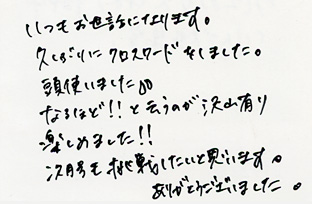 いつもお世話になります。
久しぶりにクロスワードをしました。
頭使いました
なるほど!!と云うのが沢山有り
楽しめました!!
次月号も挑戦したいと思います。
ありがとうございました。